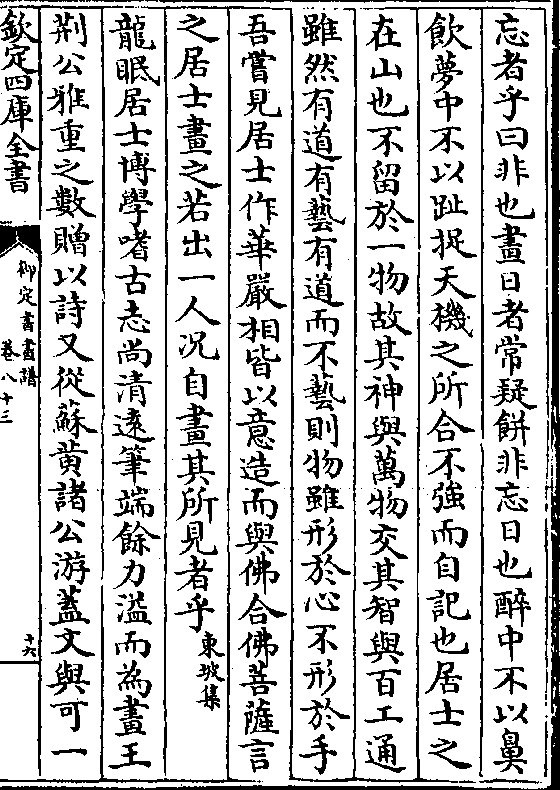 忘者乎曰非也畫日者常疑餅非忘日也醉中不以鼻
飲夢中不以趾捉天機之所合不強而自記也居士之
在山也不留於一物故其神與萬物交其智與百工通
雖然有道有藝有道而不藝則物雖形於心不形於手
吾嘗見居士作華嚴相皆以意造而與佛合佛菩薩言
之居士畫之若出一人况自畫其所見者乎東坡集
龍眠居士博學嗜古志尚清遠筆端餘力溢而為畫王
荆公雅重之數贈以詩又從蘇黄諸公游蓋文與可一
欽定四庫全書
御定書畫譜
卷八十三
十六